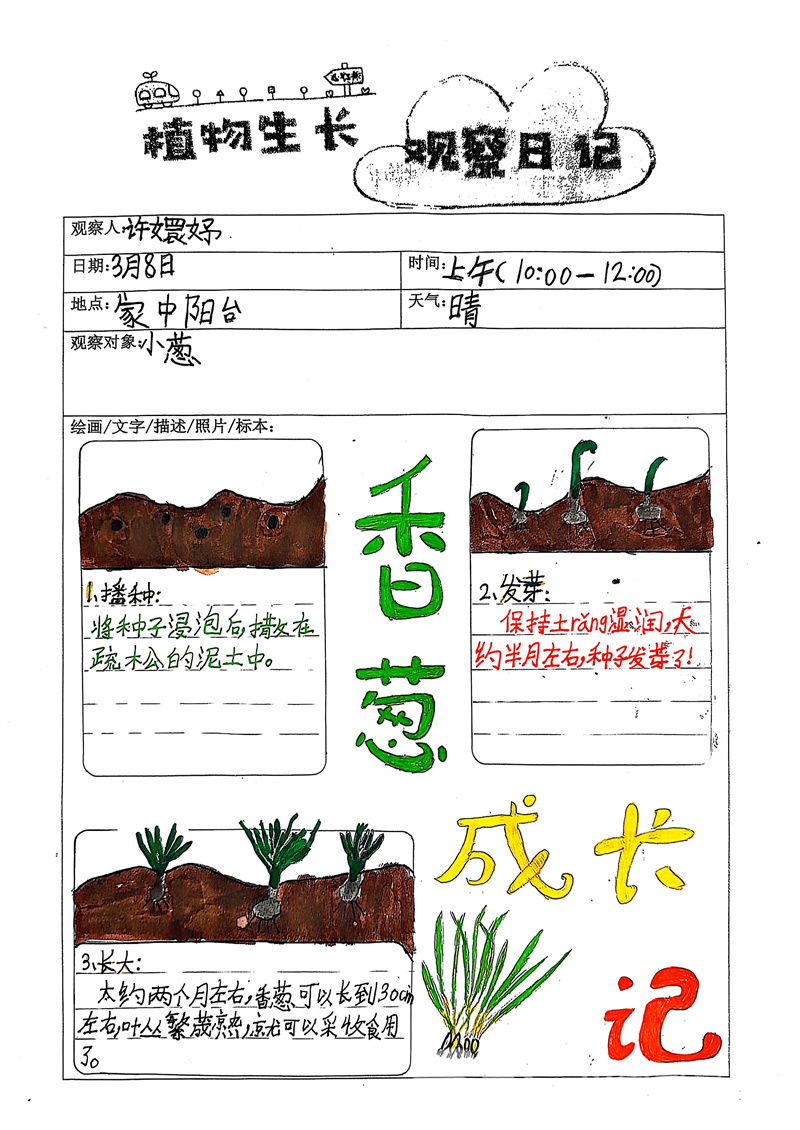 植物生长
观察日记
观察人:许嬛妤
日期:3月8日
时间:上午(10:00－12:00)
地点:家中阳台
天气:晴
观察对象:小葱
绘画/文字/描述/照片/标本:
香葱
成长
记
1.播种:
将种子浸泡后,撒在
疏松的泥土中。
2.发芽:
保持土rǎng湿润,大
约半月左右,种子发芽了!
3.长大:
大约两个月左右,香葱可以长到30cm
左右,叶丛繁茂熟,就可以采收食用
了。